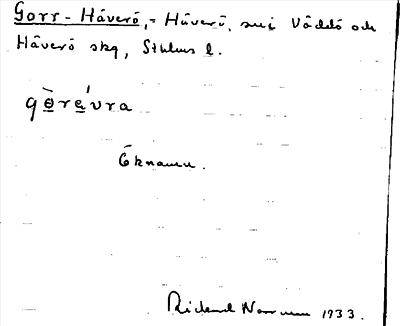 Gorr-Häverö, = Häverö, sn i Väddö och
Häverö skg, Sthlms l.
gò̱re̱´vra
Öknamn.
Rickard Norrman 1933.